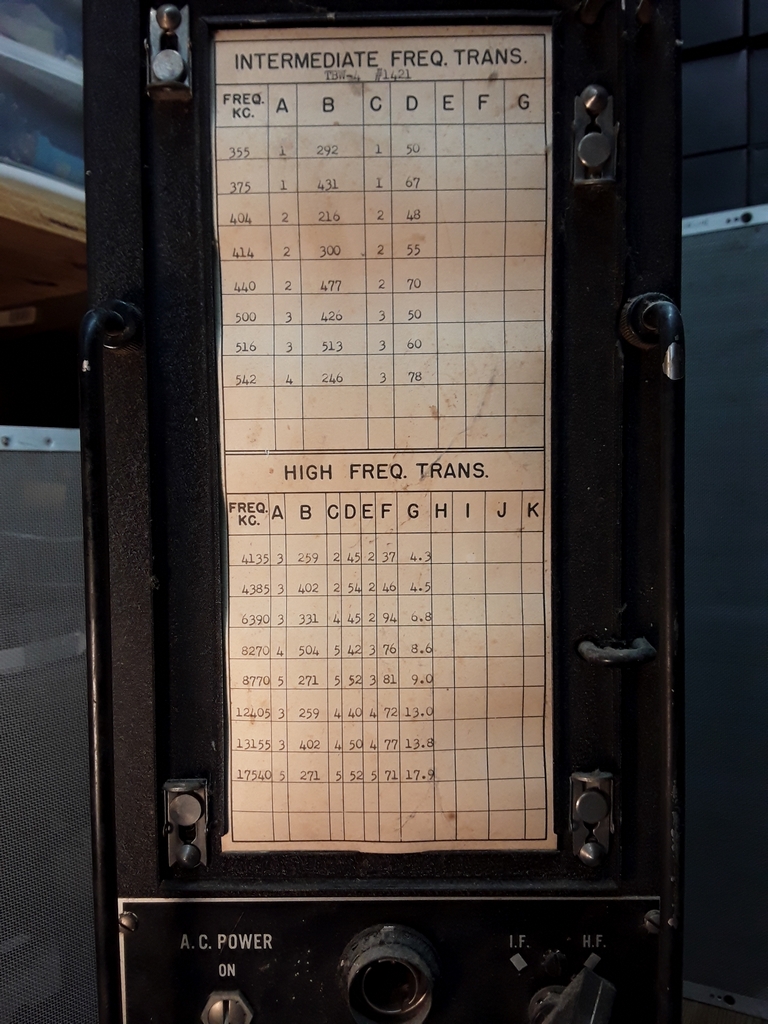 INTERMEDIATE FREQ. TRANS.
TBW-4 #1421
FREQ. KC. A B C D E F G
355 1 292 1 50
375 1 431 1 67
404 2 216 2 48
414 2 300 2 55
440 2 477 2 70
500 3 426 3 50
516 3 513 3 60
542 4 246 3 78
HIGH FREQ. TRANS.
FREQ. KC. A B C D E F G H I J K
4135 3 259 2 45 2 37 4.3
4385 3 402 2 54 2 46 4.5
6390 3 331 4 45 2 94 6.8
8270 4 504 5 42 3 76 8.6
8770 5 271 5 52 3 81 9.0
12405 3 259 4 40 4 72 13.0
13155 3 402 4 50 4 77 13.8
17540 5 271 5 52 5 71 17.9
A.C. POWER
ON
I.F. H.F.